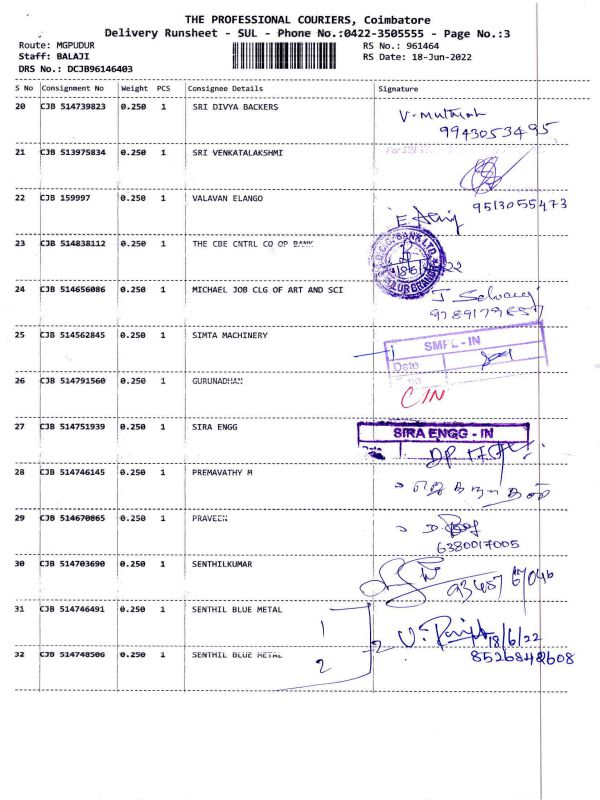 THE PROFESSIONAL COURIERS, Coimbatore
Delivery Runsheet - SUL - Phone No.:0422-3505555 - Page No.:3
Route: MGPUDUR RS No.: 961464
Staff: BALAJI RS Date: 18-Jun-2022
DRS No.: DCJB96146403
S No Consignment No Weight PCS Consignee Details Signature
20 CJB 514739823 0.250 1 SRI DIVYA BACKERS
9943053495
21 CJB 513975834 0.250 1 SRI VENKATALAKSHMI
22 CJB 159997 0.250 1 VALAVAN ELANGO 9513055473
23 CJB 514838112 0.250 1 THE CBE CNTRL CO OP BANK
24 CJB 514656086 0.250 1 MICHAEL JOB CLG OF ART AND SCI
25 CJB 514562845 0.250 1 SIMTA MACHINERY
SMPL - IN
Date
26 CJB 514791560 0.250 1 GURUNADHAN
27 CJB 514751939 0.250 1 SIRA ENGG SIRA ENGG - IN
28 CJB 514746145 0.250 1 PREMAVATHY M
29 CJB 514670865 0.250 1 PRAVEEN
6380017005
30 CJB 514703690 0.250 1 SENTHILKUMAR
31 CJB 514746491 0.250 1 SENTHIL BLUE METAL 1
18/6/22
32 CJB 514748506 0.250 1 SENTHIL BLUE METAL 2